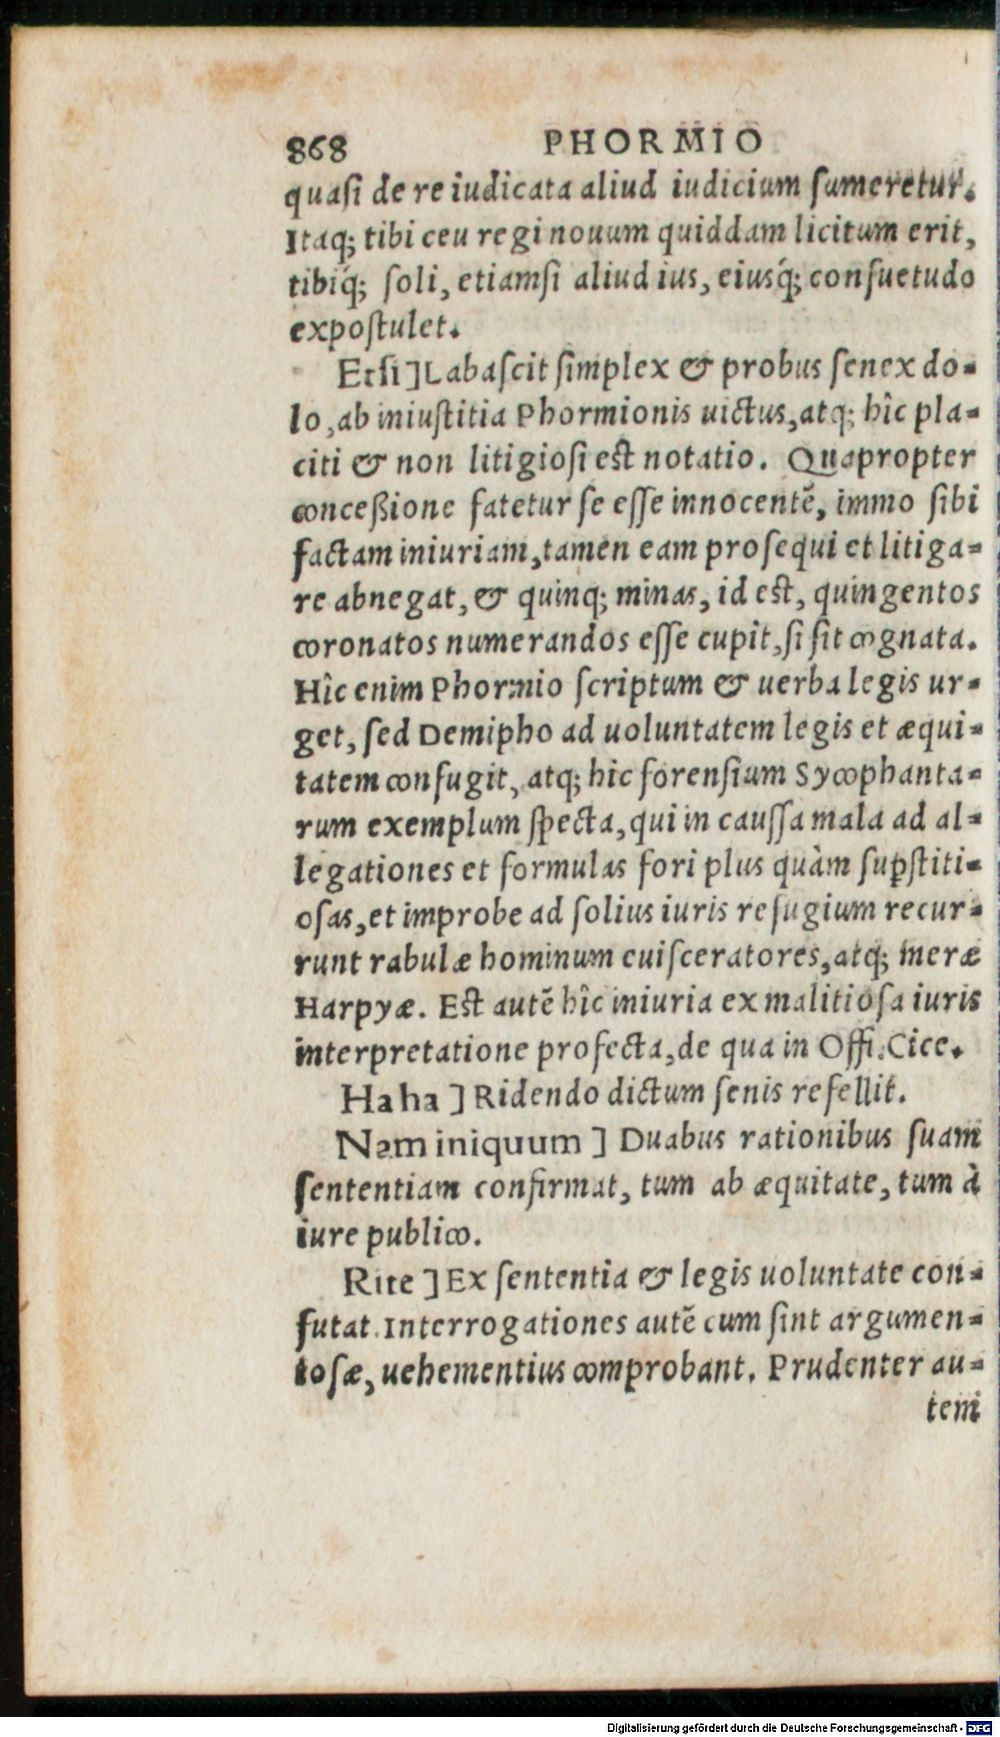 868 PHORMIO
quasi de re iudicata aliud iudicium sumeretur.
Itaq; tibi ceu regi nouum quiddam licitum erit,
tibiq́; soli, etiamsi aliud ius, eiusq́; consuetudo
expostulet.
Etsi] Labascit simplex & probus senex do-
lo, ab iniustitia Phormionis uictus, atq; hîc pla-
citi & non litigiosi est notatio. Quapropter
conceßione fatetur se esse innocentẽ, immo sibi
factam iniuriam, tamen eam prosequi et litiga-
re abnegat, & quinq; minas, id est, quingentos
coronatos numerandos esse cupit, si sit cognata.
Hîc enim Phormio scriptum & uerba legis ur-
get, sed Demipho ad uoluntatem legis et æqui-
tatem confugit, atq; hic forensium Sycophanta-
rum exemplum specta, qui in caussa mala ad al-
legationes et formulas fori plus quàm supstiti-
osas, et improbe ad solius iuris refugium recur-
runt rabulæ hominum euisceratores, atq; meræ
Harpyæ. Est autẽ hîc iniuria ex malitiosa iuris
interpretatione profecta, de qua in Offi. Cice.
Haha] Ridendo dictum senis refellit.
Nam iniquum] Duabus rationibus suam
sententiam confirmat, tum ab æquitate, tum à
iure publico.
Rite] Ex sententia & legis uoluntate con-
futat. Interrogationes autẽ cum sint argumen-
tosæ, uehementius comprobant. Prudenter au-
tem
Digitalisierung gefördert durch die Deutsche Forschungsgemeinschaft - DFG